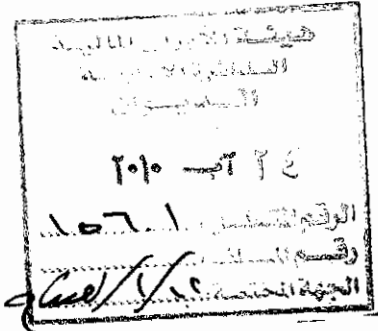 هيئة الأوراق المالية
الدائرة الإدارية
الديوان
٢٤ آب ٢٠١٠
الرقم المتسلسل ١٥٦٠١
رقم الملف
الجهة المختصة